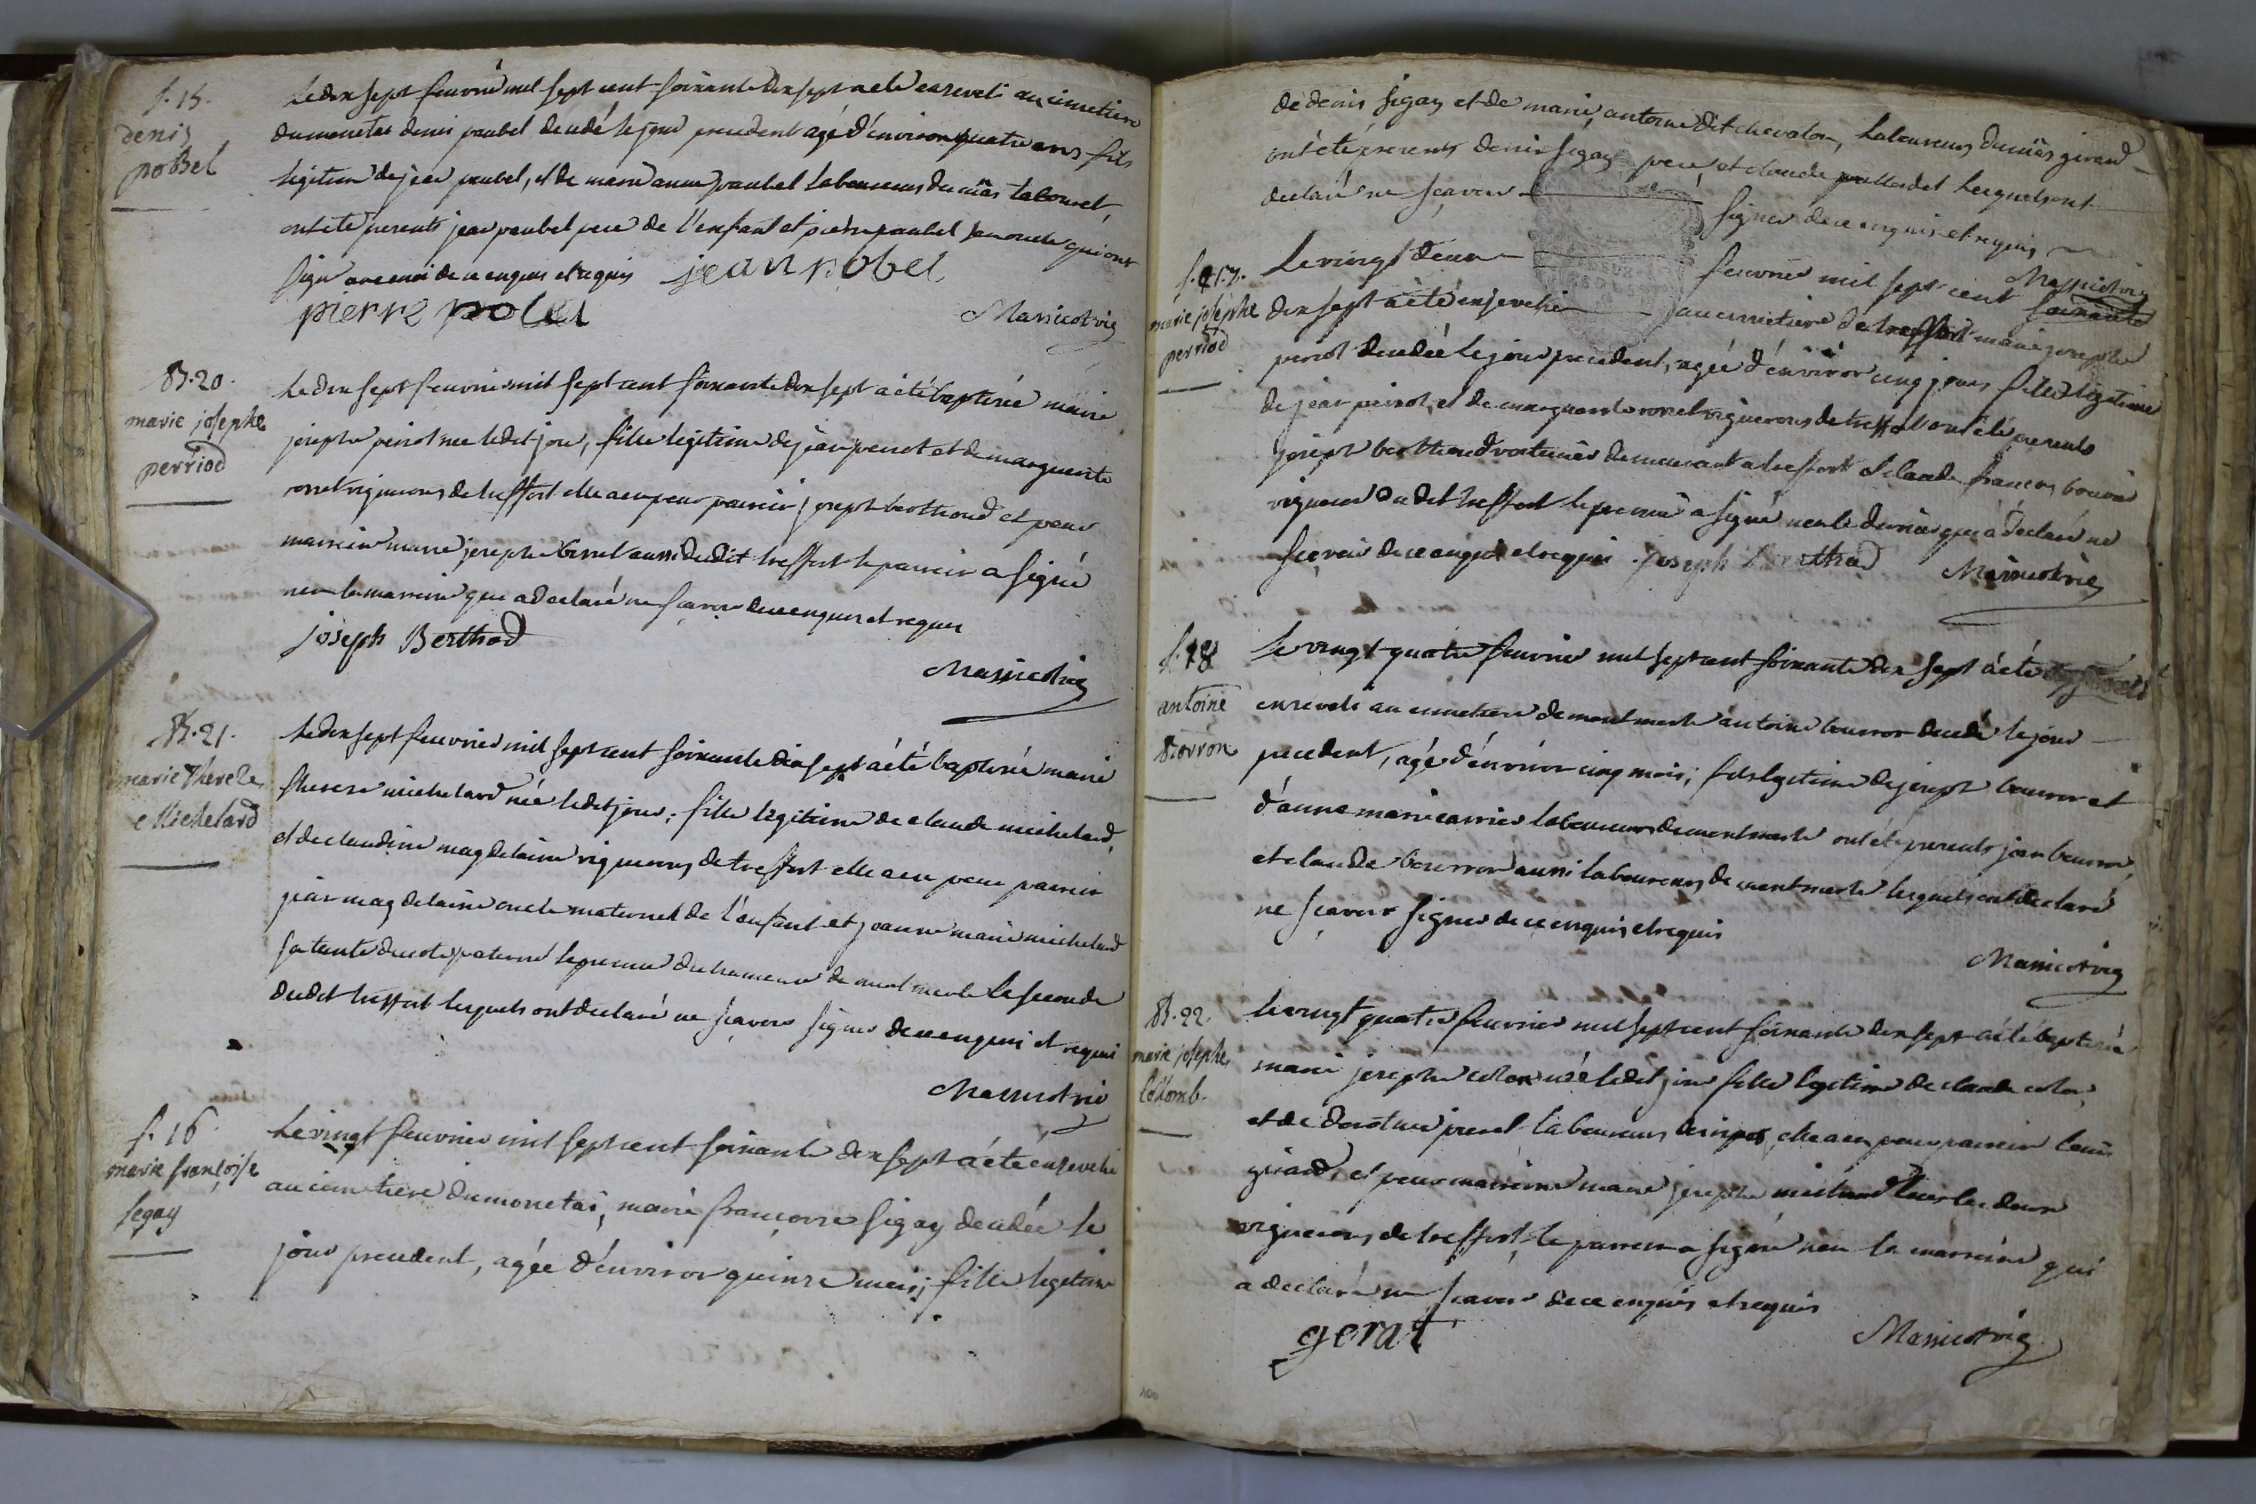 f. 15.
denis
pobel
le dix sept fevrier mil sept cent soixante dix sept a eté enseveli au cimetiere
du monetai denis paubel decedé le jour precedent agé d'environ quatre ans fils
legitime de jean paubel, et de marie anne paubel laboureurs du mas tabouret,
ont eté presents jean paubel pere de l'enfant et pierre paubel son oncle qui ont
signé avec moi de ce enquis et requis jean pobel
pierre pobel
Massicotvig
B. 20.
marie josephe
perriod
le dix sept fevrier mil sept cent soixante dix sept a eté baptisée marie
josephe perriot née ledit jour, fille legitime de jean perriot et de marguerite
vignerons de treffort elle a eu pour parrein joseph berthoud et pour
marreine marie josephe aussi dudit treffort le parrein a signé
non la marreine qui a declaré ne sçavoir de ce enquis et requis
joseph Berthod
Massicotvig
B. 21.
marie Therese
Michelard
le dix sept fevrier mil sept cent soixante dix sept a été baptisée marie
therese michelard née ledit jour, fille legitime de claude michelard,
et de claudine magdelaine vignerons de treffort elle a eu pour parrein
jean magdelaine oncle maternel de l'enfant et joanne marie michelard
sa tante du coté paternel le premier du hameau de montmerle la seconde
dudit treffort lesquels ont declaré ne sçavoir signer de ce enquis et requis
Massicotvig
f. 16.
marie françoise
segay
le vingt fevrier mil sept cent soixante dix sept a été ensevelie
au cimetiere du monetai, marie françoise sigay decedée le
jour precedent, agée d'environ quinze mois, fille legitime
de denis sigay et de marie antoine dit chevalon, laboureurs du mas girard
ont été presents denis sigay pere, et claude lesquels ont
declaré ne sçavoir signer de ce enquis et requis
Massicotvig
f. 17.
marie josephe
perriod
le vingt deux fevrier mil sept cent soixante
dix sept a été ensevelie au cimetiere de treffort marie josephe
perriot decedée le jour precedent, agée d'environ cinq jours fille legitime
de jean perriot, et de marguerite vignerons de treffort ont été presents
joseph berthoud demeurant a treffort et claude françois bouvier
vigneron dudit treffort le premier a signé non le dernier qui a declaré ne
sçavoir de ce enquis et requis joseph Berthod Massicotvig
f. 18
antoine
Borron
le vingt quatre fevrier mil sept cent soixante dix sept a été
enseveli au cimetiere de montmerle antoine bourron decedé le jour
precedent, agé d'environ cinq mois, fils legitime de joseph bourron et
d'anne marie carrier laboureurs de montmerle ont été presents jean bourron,
et claude bourron aussi laboureurs de montmerle lesquels ont declaré
ne sçavoir signer de ce enquis et requis
Massicotvig
B. 22.
marie josephe
Collomb.
le vingt quatre fevrier mil sept cent soixante dix sept a été baptisée
marie josephe colon née ledit jour fille legitime de claude colon,
et de dorothée laboureurs elle a eu pour parrein louis
girard, et pour marreine marie josephe tous les deux
vignerons de treffort, le parrein a signé non la marreine qui
a declaré ne sçavoir de ce enquis et requis
gerat Massicotvig